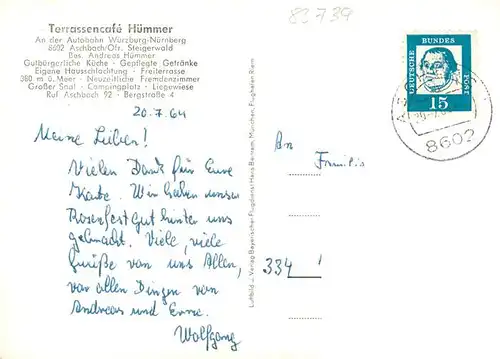 83739
Terrassencafé Hümmer
An der Autobahn Würzburg-Nürnberg
8602 Aschbach/Ofr. Steigerwald
Bes. Andreas Hümmer
Gutbürgerliche Küche · Gepflegte Getränke
Eigene Hausschlachtung · Freiterrasse
380 m ü. Meer · Neuzeitliche Fremdenzimmer
Großer Saal · Campingplatz · Liegewiese
Ruf Aschbach 92 · Bergstraße 4
20.7.64
Meine Lieben!
Vielen Dank für Eure
Karte. Wir haben unser
Rosenfest gut hinter uns
gebracht. Viele, viele
Grüße von uns Allen,
vor allen Dingen von
Andreas und Erna.
Wolfgang
Luftbild - Verlag Bayerischer Flugdienst Hans Bertram, München, Flughafen Riem
DEUTSCHE
BUNDES
POST
15
8602
An
Familie
334